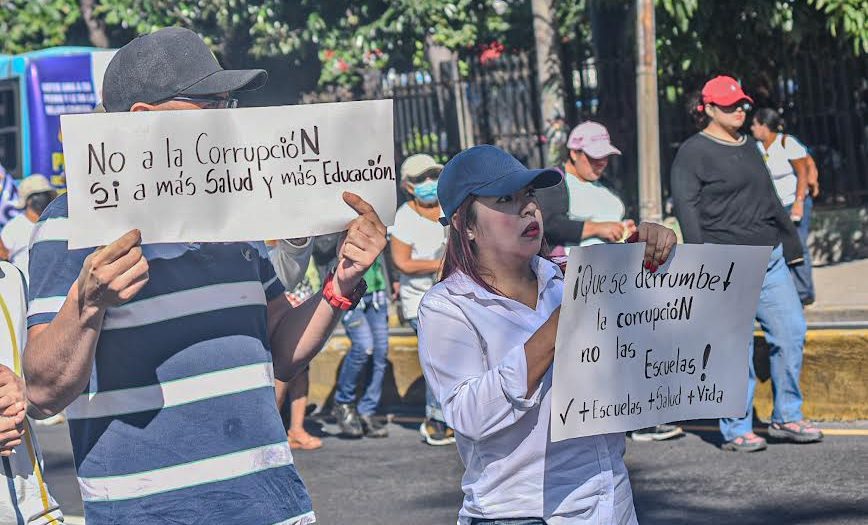 No a la CorrupcióN
Si a más Salud y más Educación.
¡Que se derrumbe
la corrupcióN
no las
Escuelas!
✓ + Escuelas + Salud + Vida